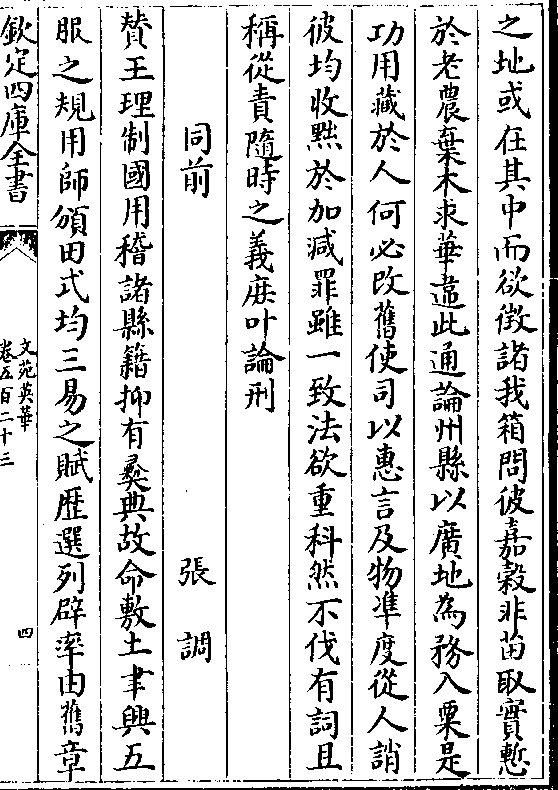 之地或在其中而欲徴諸我箱問彼嘉穀非苗取實慙
於老農棄木求華違此通論州縣以廣地為務入粟是
功用藏於人何必改舊使司以惠言及物準度從人誚
彼均收㸃於加減罪雖一致法欲重科然不伐有詞且
稱從責隨時之義庶叶論刑
同前 張調
賛王理制國用稽諸縣籍抑有彜典故命敷土聿興五
服之規用師頒田式均三易之賦歴選列辟率由舊章
欽定四庫全書
文苑英華
卷五百二十三
四